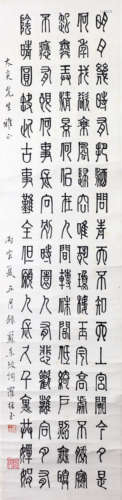 明月幾時有把酒問青天不知天上宮闕今夕是
何年我欲乘風歸去又恐瓊樓玉宇高處不勝寒
起舞弄清影何似在人間轉朱閣低綺戶照無眠
不應有恨何事長向別時圓人有悲歡離合月有
陰晴圓缺此事古難全但願人長久千里共嬋娟
先生雅正
丙寅夏五月錄蘇東坡詞 羅振玉